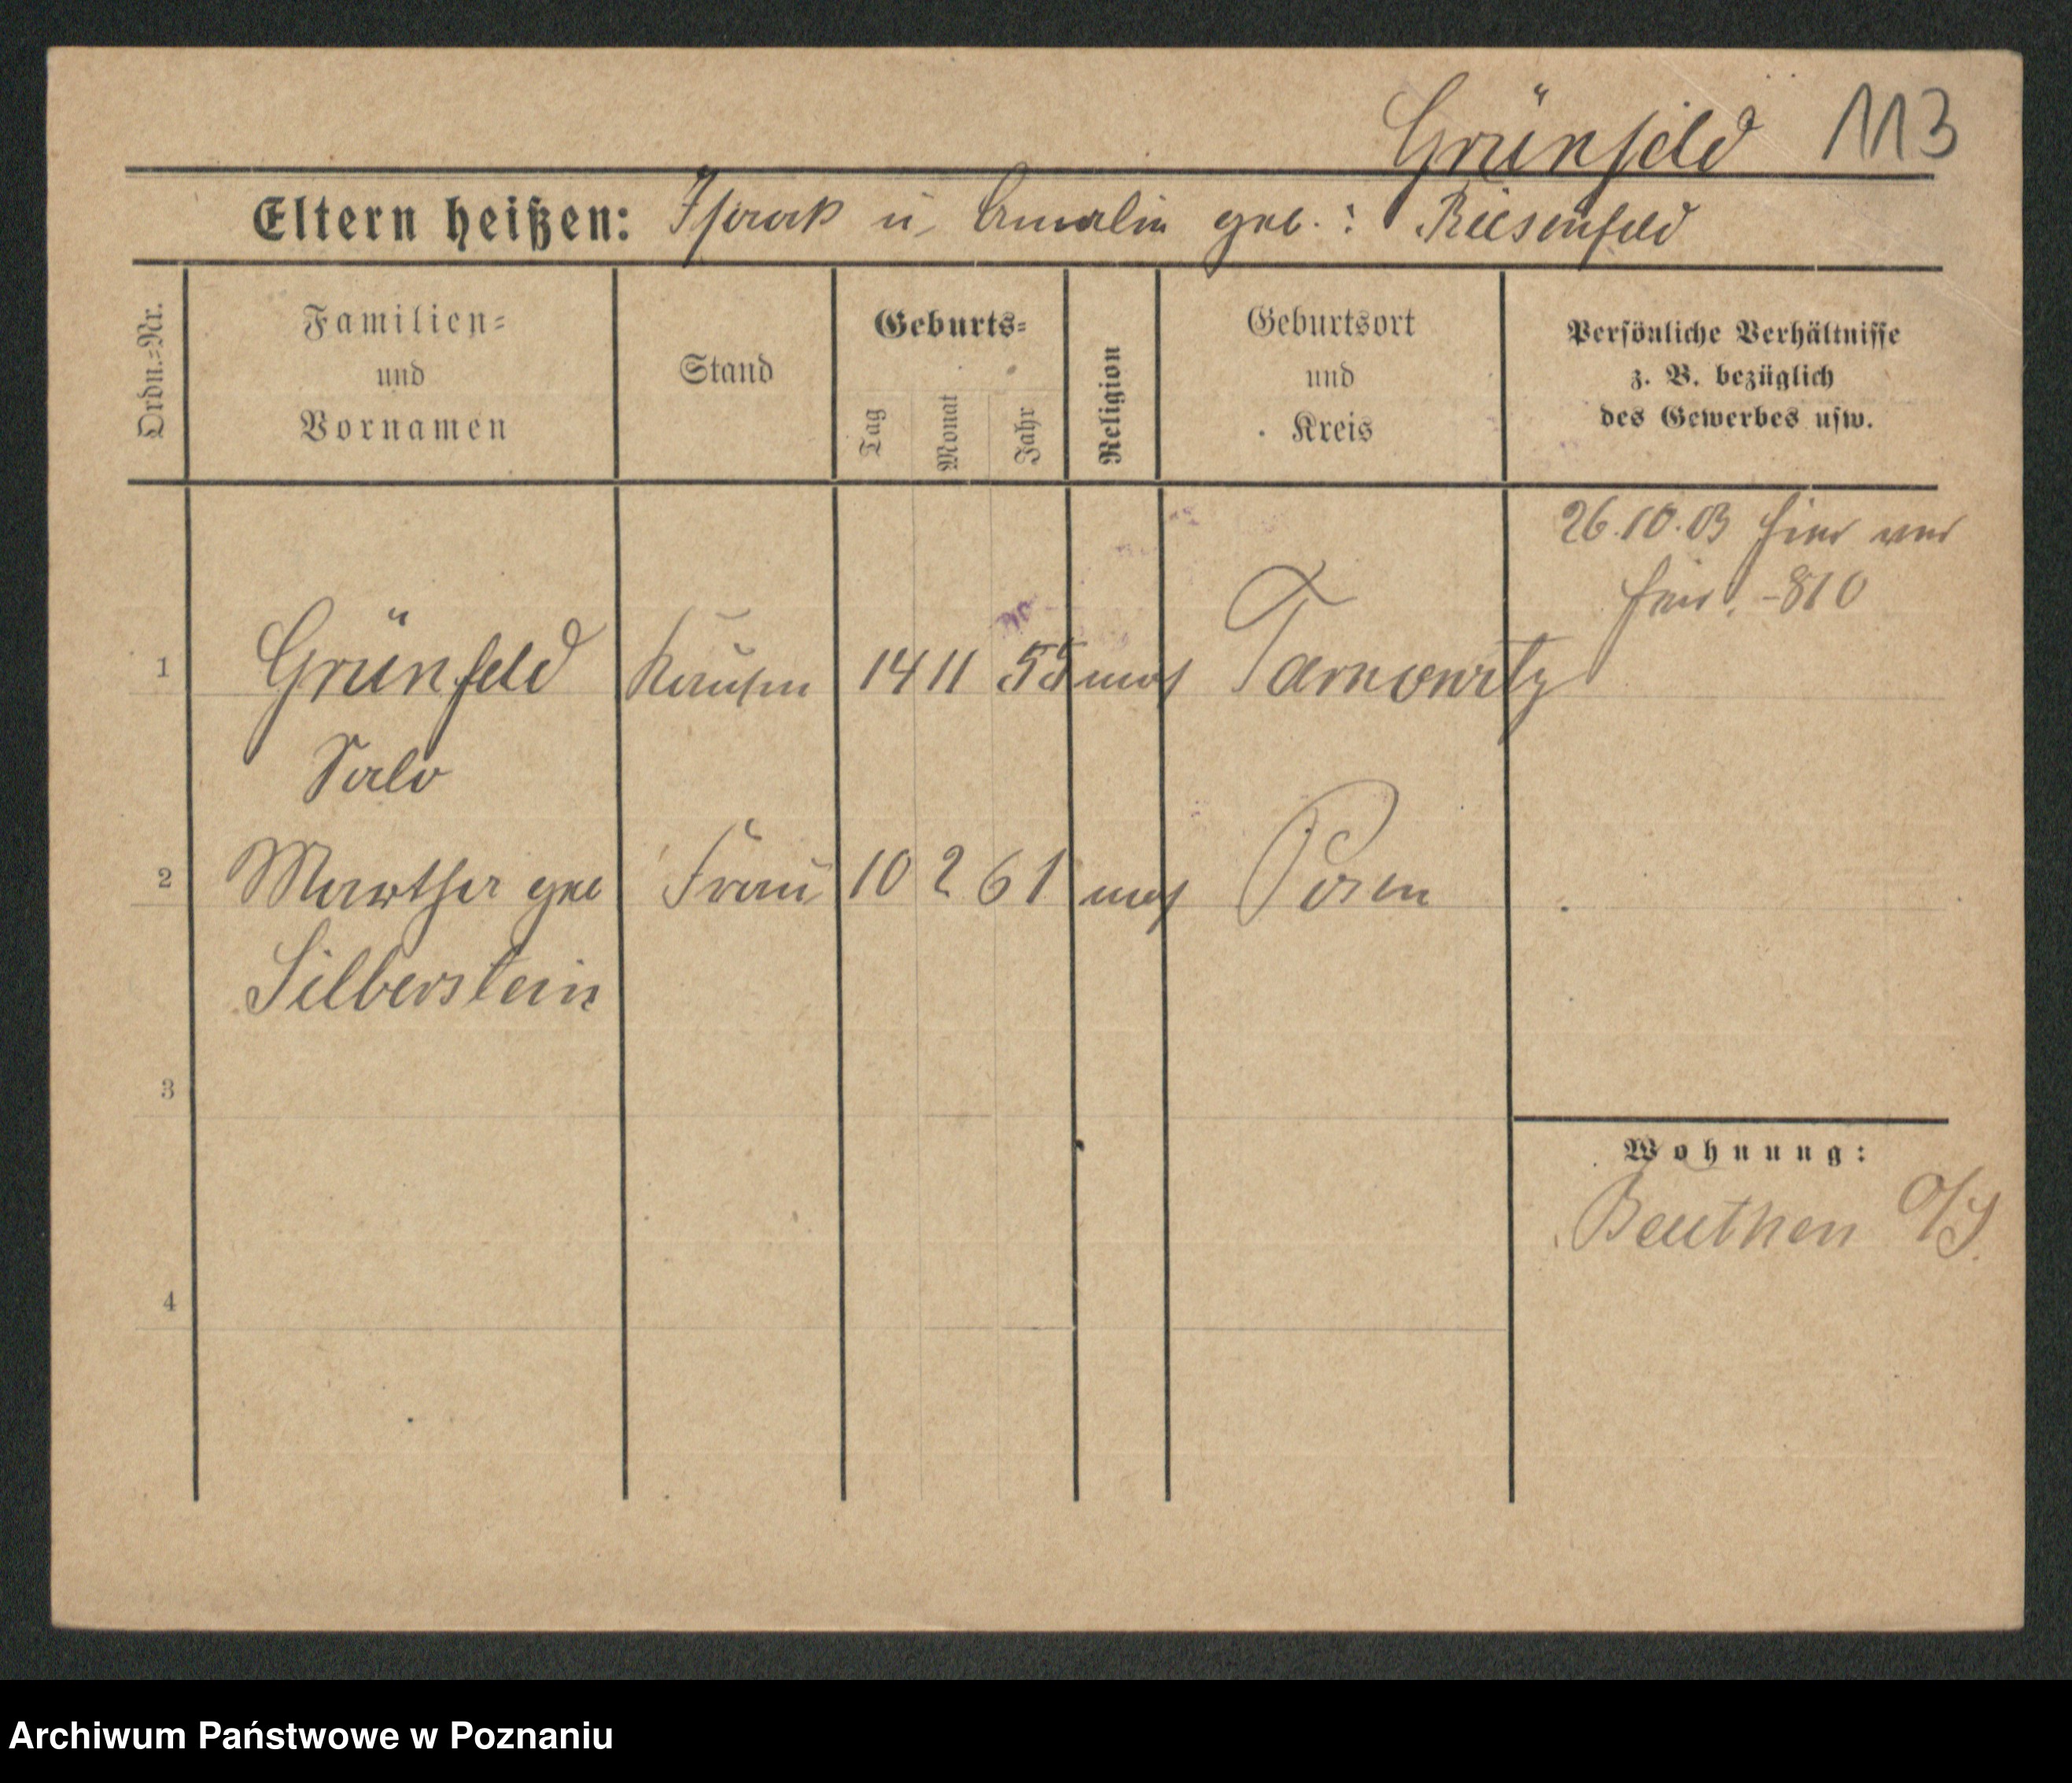 Grünfeld 113
Eltern heißen: Isaak u. Amalie geb.: Riesenfeld
Ordn.=Nr.
Familien=
und
Vornamen
Stand
Geburts=
Tag
Monat
Jahr
Religion
Geburtsort
und
Kreis
Persönliche Verhältnisse
z. B. bezüglich
des Gewerbes usw.
26.10.03 hier
-810
1 Grünfeld Kaufm 14 11 55 mos Tarnowitz
Salo
2 Martha geb Frau 10 2 61 mos Posen
Silberstein
3
Wohnung:
Beuthen O/S.
4
Archiwum Państwowe w Poznaniu